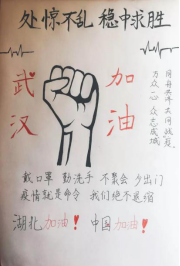 处惊不乱 稳中求胜
武汉
加油
同舟共济共同战疫
万众一心众志成城
戴口罩 勤洗手 不聚会 少出门
疫情就是命令 我们绝不退缩
湖北加油！中国加油！